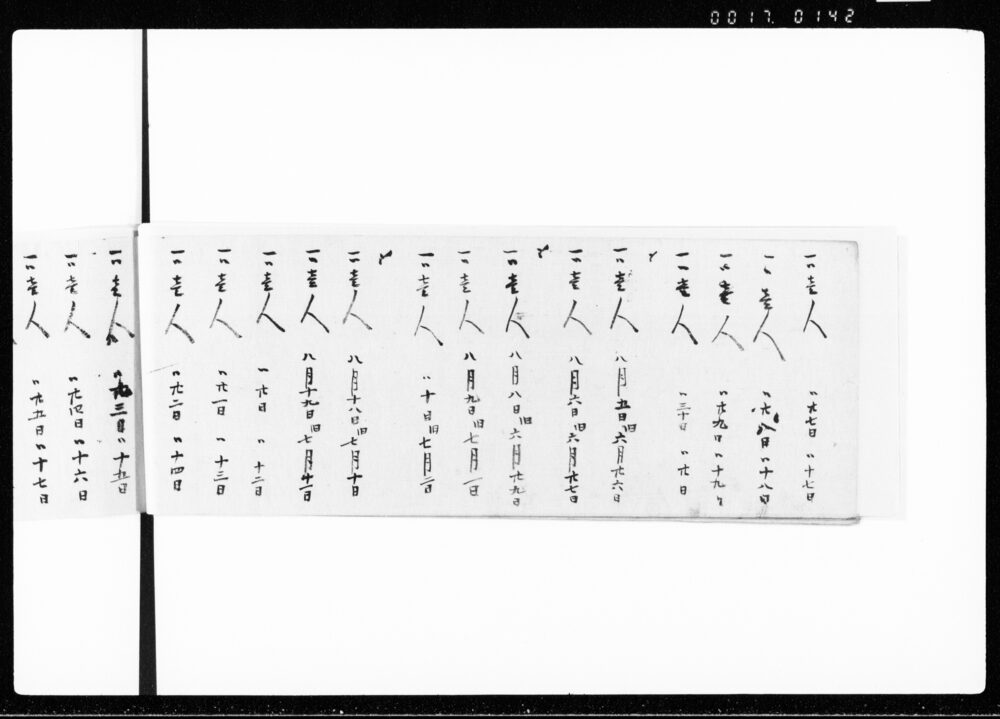 0017. 0142
一〃壱人 〃廿七日 〃十七日
一〃壱人 〃廿八日〃十八日
一〃壱人 〃廿九日〃十九日
一〃壱人 〃三十日 〃廿日
一〃壱人 八月五日旧六月廿六日
一〃壱人 八月六日旧六月廿七日
一〃壱人 八月八日旧六月廿九日
一〃壱人 八月九日旧七月一日
一〃壱人 〃十日旧七月二日
一〃壱人 八月十八日旧七月十日
一〃壱人 八月十九日旧七月十一日
一〃壱人 〃廿日 〃十二日
一〃壱人 〃廿一日 〃十三日
一〃壱人 〃廿二日 〃十四日
一〃壱人 〃廿三日〃十五日
一〃壱人 〃廿四日〃十六日
一〃壱人 〃廿五日〃十七日